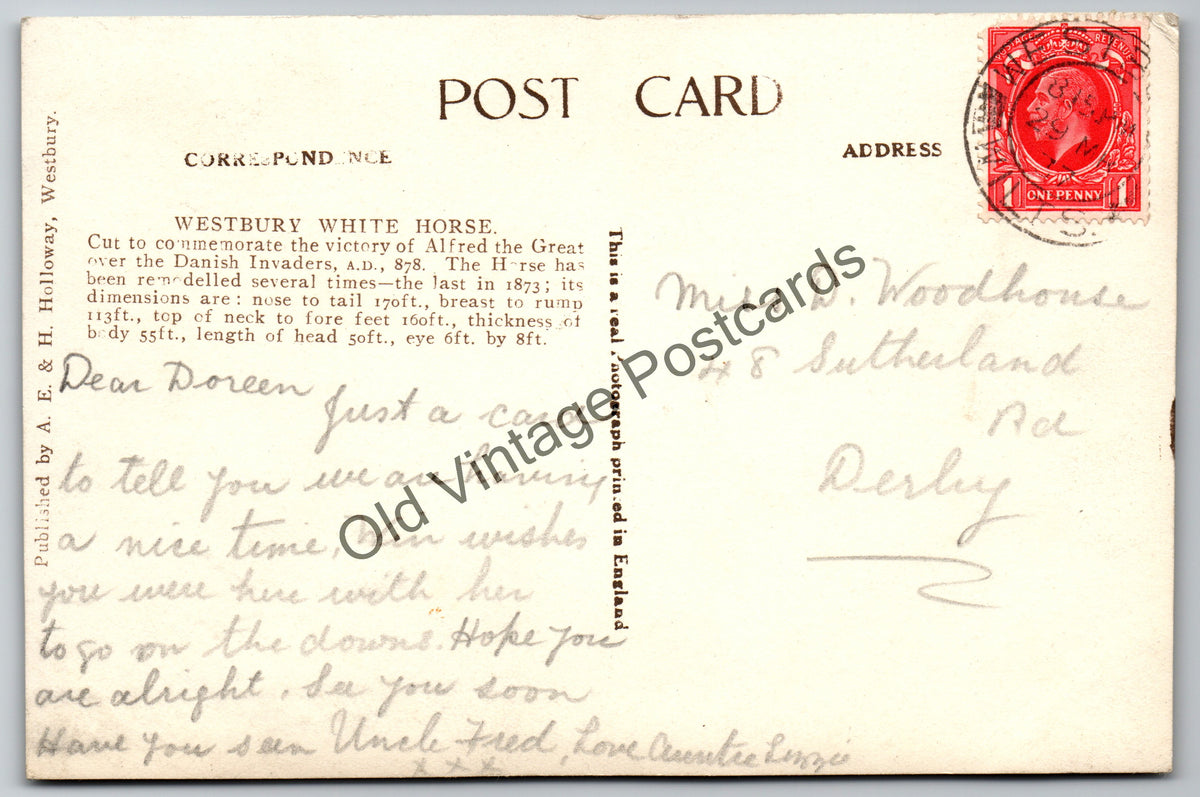 POST CARD
CORRESPONDENCE
ADDRESS
WESTBURY WHITE HORSE.
Cut to commemorate the victory of Alfred the Great
over the Danish Invaders, A.D., 878. The Horse has
been remodelled several times—the last in 1873; its
dimensions are: nose to tail 170ft., breast to rump
113ft., top of neck to fore feet 160ft., thickness of
body 55ft., length of head 50ft., eye 6ft. by 8ft.
Published by A. E. & H. Holloway, Westbury.
This is a real Photograph printed in England
Dear Doreen
Just a card
to tell you we are having
a nice time, wishes
you were here with her
to go on the downs. Hope you
are alright. See you soon
Have you seen Uncle Fred, Love Auntie Lizzie
x x x
Miss D. Woodhouse
48 Sutherland
Rd
Derby
POSTAGE REVENUE
1 ONE PENNY 1
WILTS.
Old Vintage Postcards